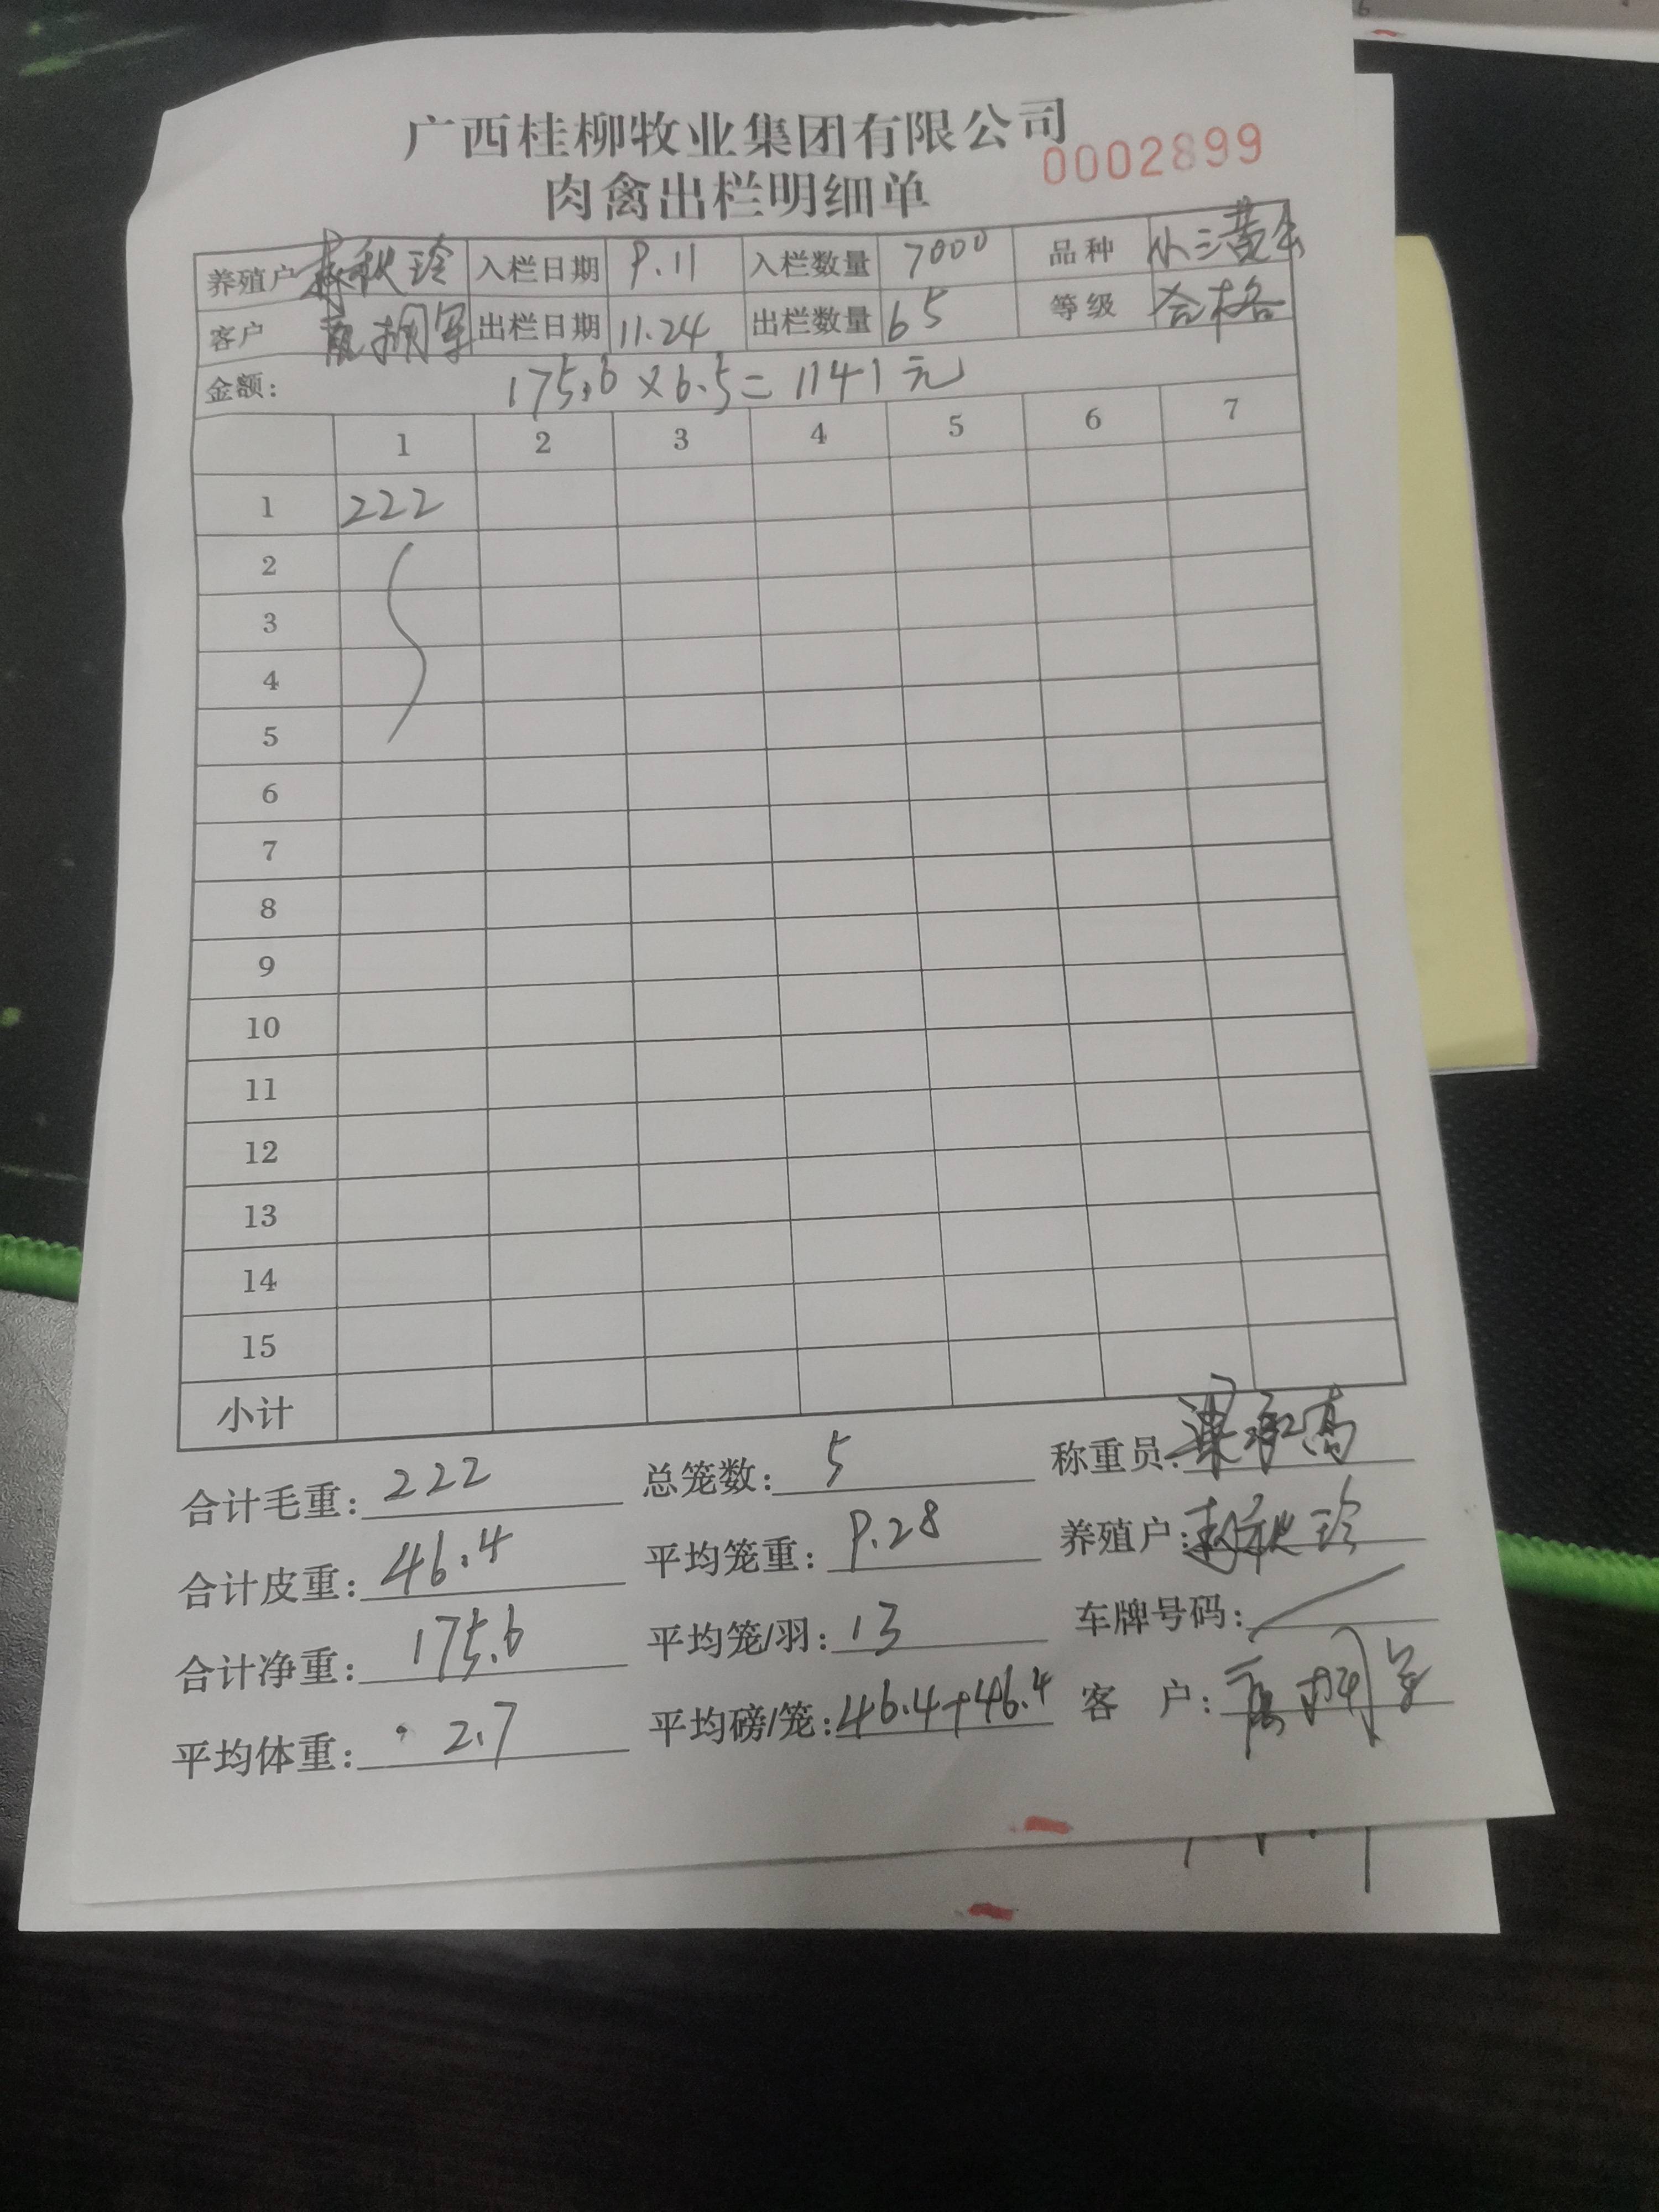 广西桂柳牧业集团有限公司
0002899
肉禽出栏明细单
养殖户 秋玲 入栏日期 9.11 入栏数量 7000 品种 小三黄
客户 出栏日期 11.24 出栏数量 65 等级 合格
金额: 175.6×6.5=1141元
1 2 3 4 5 6 7
1 222
2
3
4
5
6
7
8
9
10
11
12
13
14
15
小计
合计毛重: 222 总笼数: 5 称重员: 梁承高
合计皮重: 46.4 平均笼重: 9.28 养殖户: 秋玲
合计净重: 175.6 平均笼/羽: 13 车牌号码:
平均体重: 2.7 平均磅/笼: 46.4+46.4 客 户: